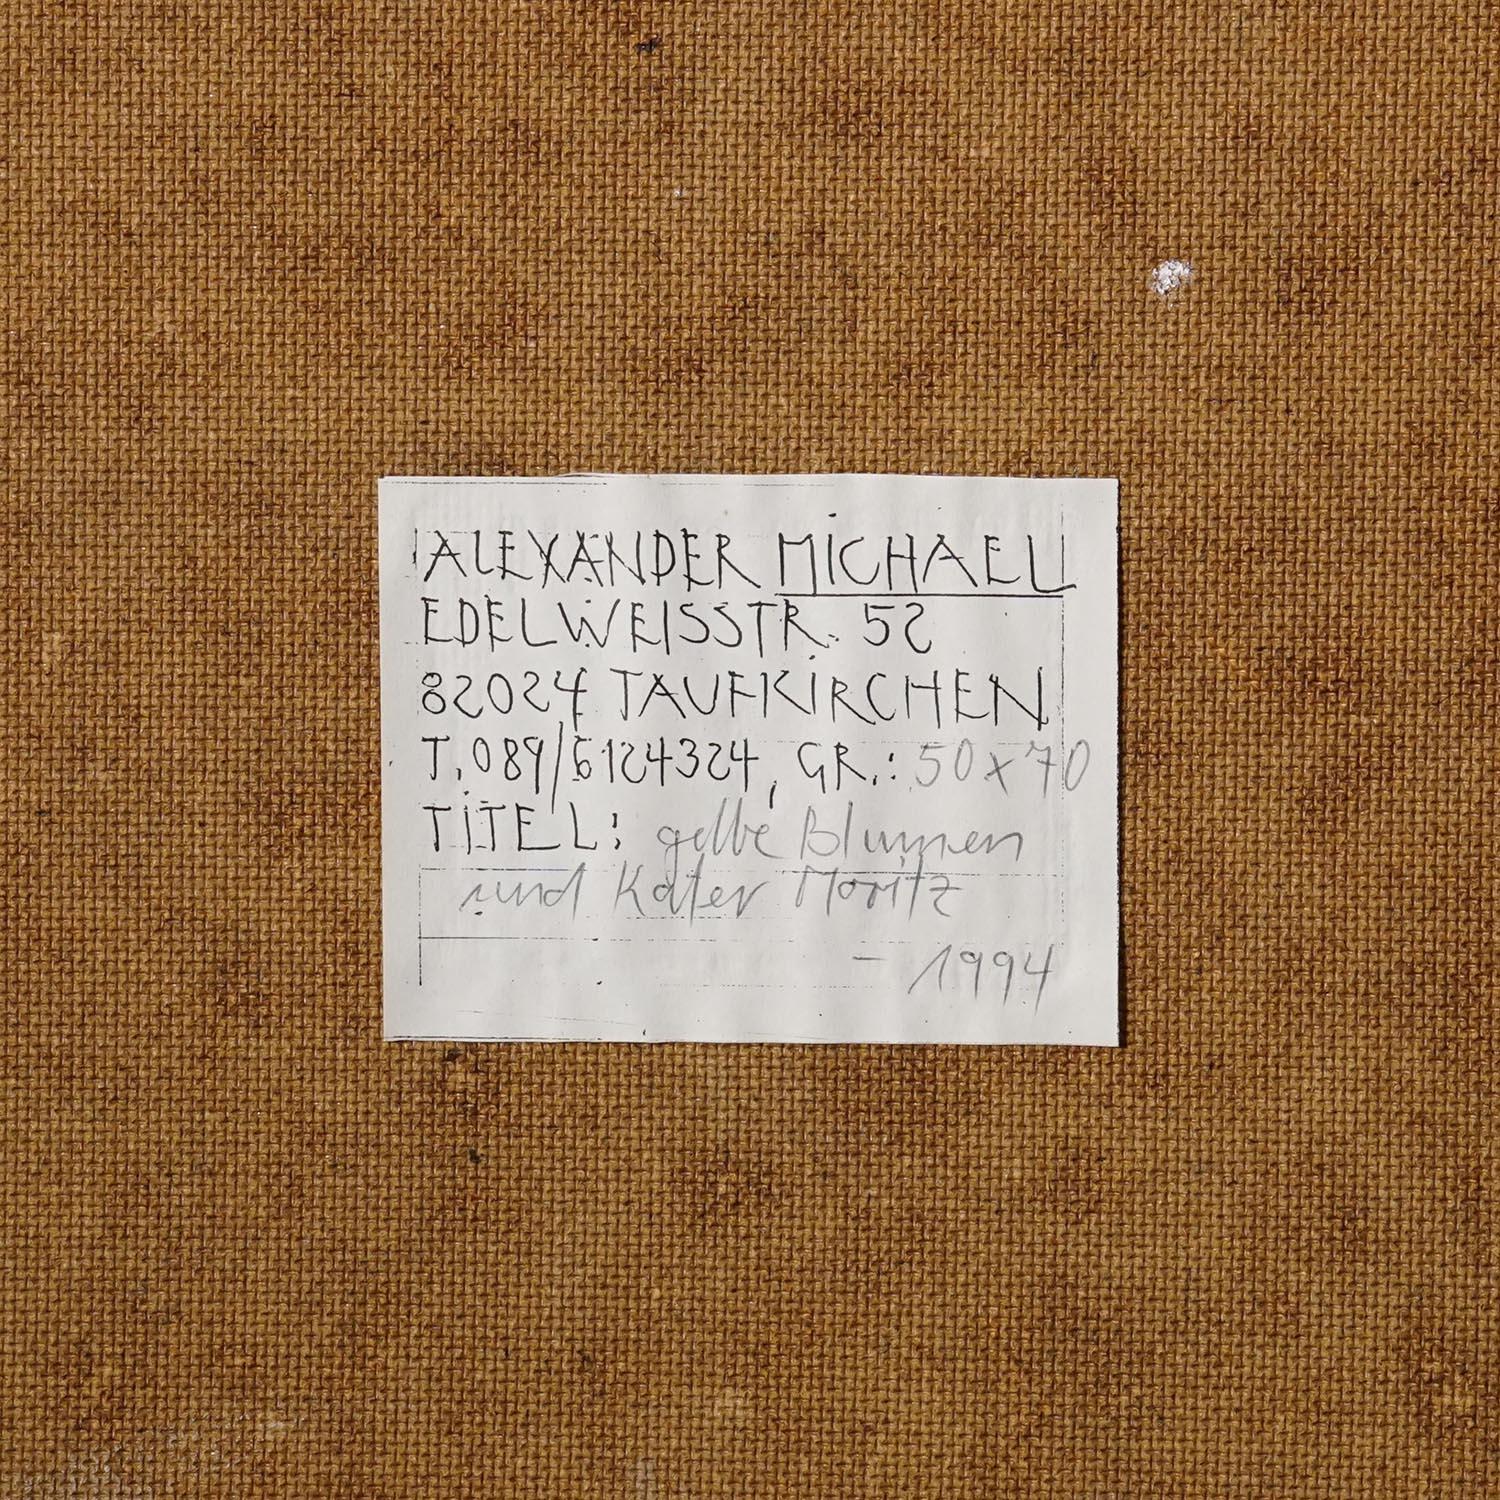 ALEXANDER MICHAEL
EDELWEISSTR. 52
82024 TAUFKIRCHEN
T. 089/6124324, GR.: 50x70
TITEL: gelbe Blumen
und Kater Moritz
- 1994